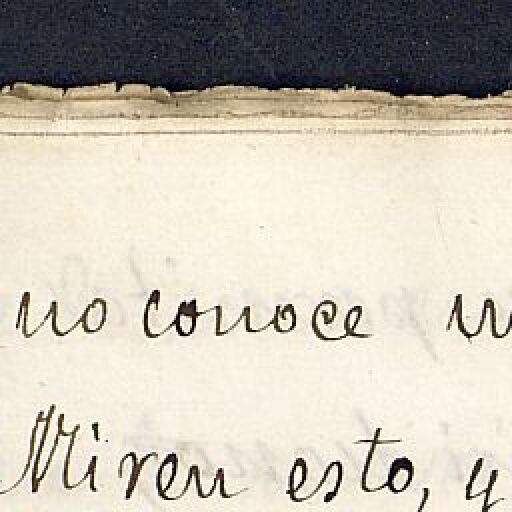 no conoce
Miren esto, y